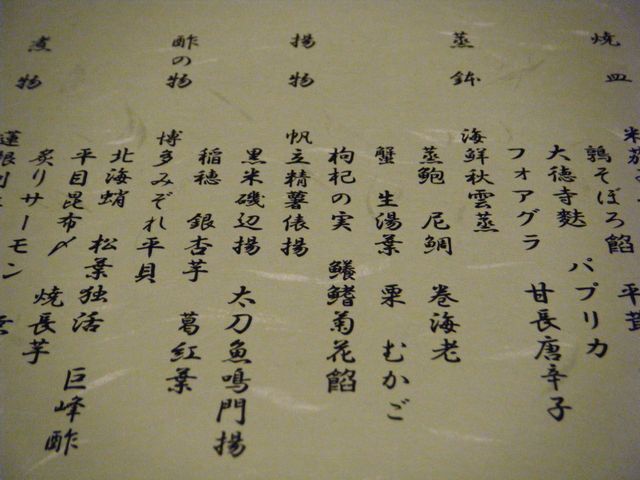 焼皿
鶉そぼろ餡 平茸
大徳寺麩 パプリカ
フォアグラ 甘長唐辛子
蒸鉢
海鮮秋雲蒸
蒸鮑 尼鯛 巻海老
蟹 生湯葉 栗 むかご
枸杞の実 鱶鰭菊花餡
揚物
帆立精薯俵揚
黒米磯辺揚 太刀魚鳴門揚
稲穂 銀杏芋 葛紅葉
酢の物
博多みぞれ平貝
北海蛸 松葉独活 巨峰酢
平目昆布〆 焼長芋
炙りサーモン
煮物